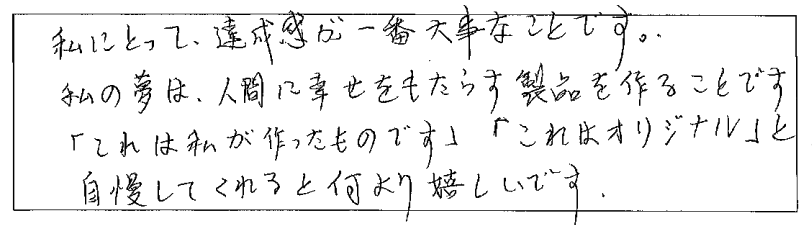 私にとって、達成感が一番大事なことです。
私の夢は、人間に幸せをもたらす製品を作ることです
「これは私が作ったものです」「これはオリジナル」と
自慢してくれると何より嬉しいです.